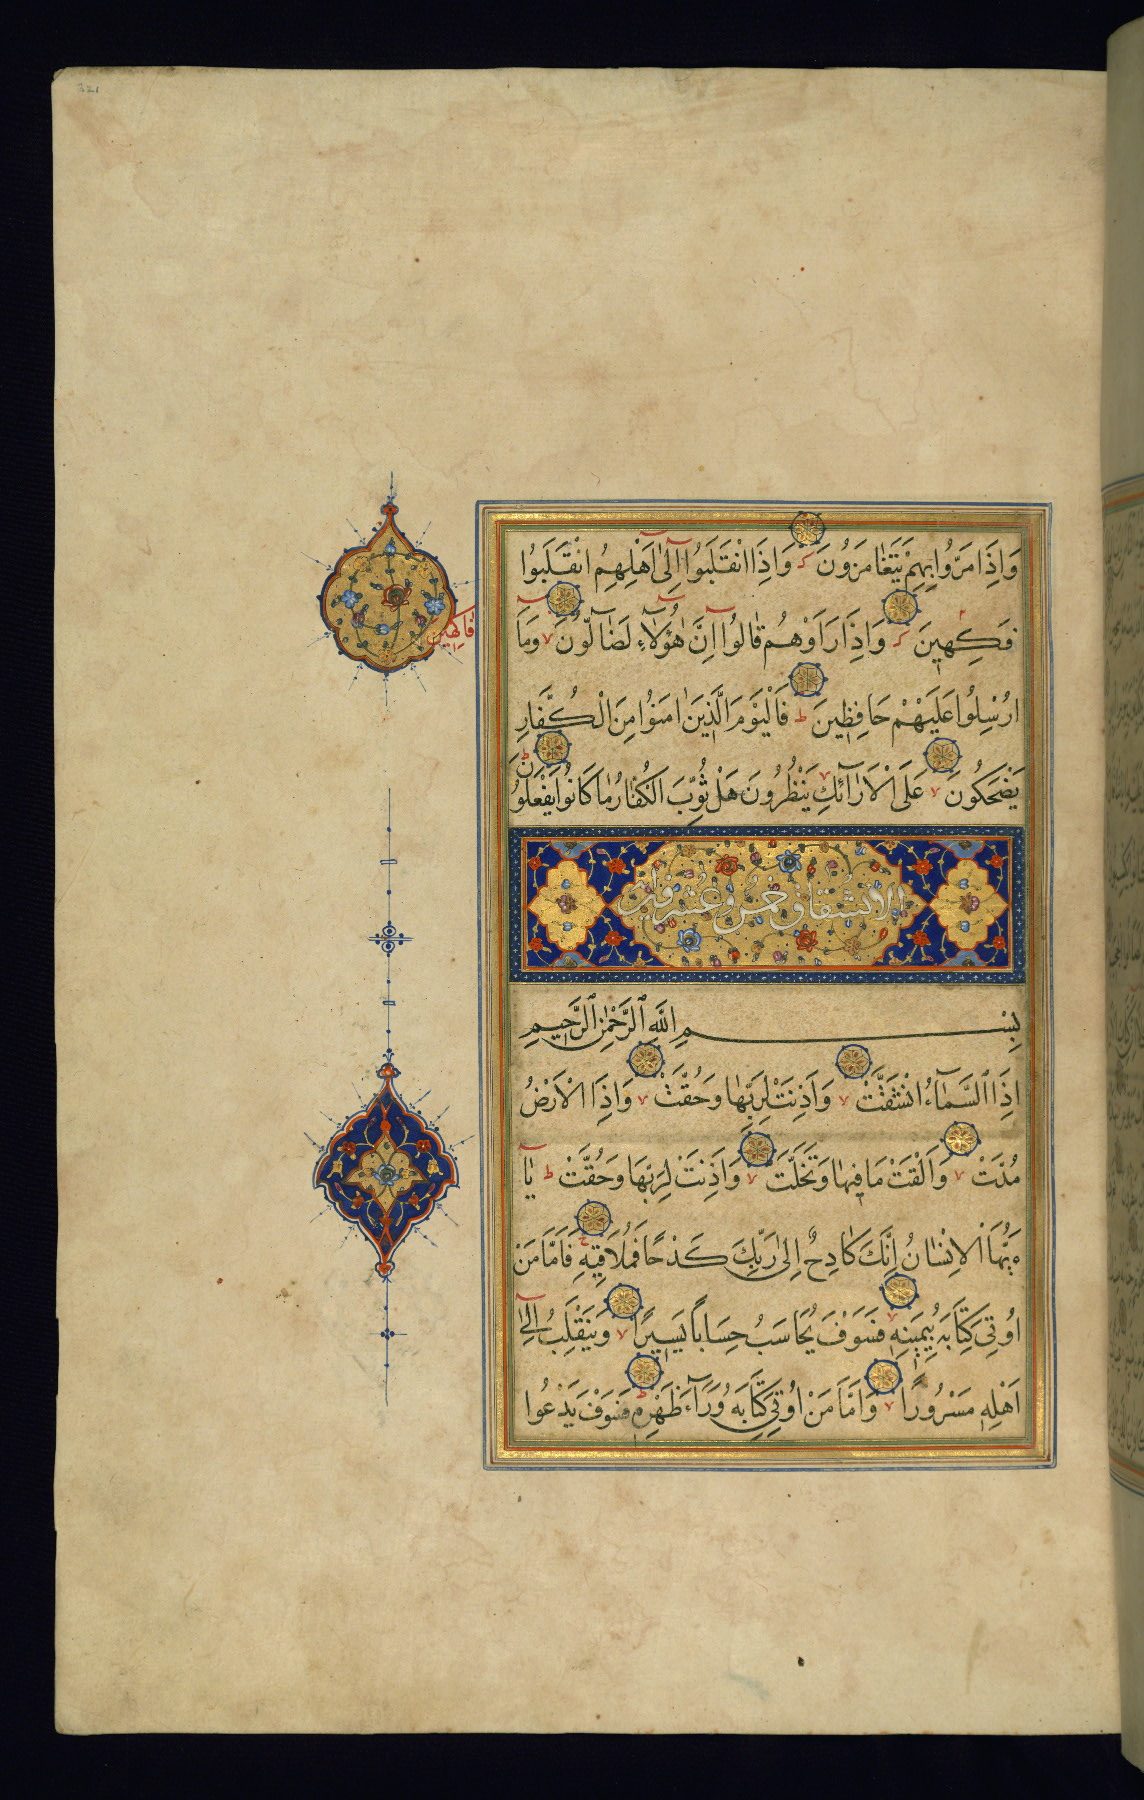 321
وَاِذَا مَرُّوا بِهِمْ يَتَغَامَزُونَ وَاِذَا انْقَلَبُوا اِلٰى اَهْلِهِمُ انْقَلَبُوا
فَكِهِينَ وَاِذَا رَاَوْهُمْ قَالُوا اِنَّ هٰؤُلَاءِ لَضَالُّونَ وَمَا
فاكِهِين
اُرْسِلُوا عَلَيْهِمْ حَافِظِينَ فَالْيَوْمَ الَّذِينَ اٰمَنُوا مِنَ الْكُفَّارِ
يَضْحَكُونَ عَلَى الْاَرَآئِكِ يَنْظُرُونَ هَلْ ثُوِّبَ الْكُفَّارُ مَا كَانُوا يَفْعَلُونَ
الانشقاق خمس وعشرون
بِسْمِ اللّٰهِ الرَّحْمٰنِ الرَّحِيمِ
اِذَا السَّمَآءُ انْشَقَّتْ وَاَذِنَتْ لِرَبِّهَا وَحُقَّتْ وَاِذَا الْاَرْضُ
مُدَّتْ وَاَلْقَتْ مَا فِيهَا وَتَخَلَّتْ وَاَذِنَتْ لِرَبِّهَا وَحُقَّتْ يَآ
ءَيُّهَا الْاِنْسَانُ اِنَّكَ كَادِحٌ اِلٰى رَبِّكَ كَدْحًا فَمُلَاقِيهِ فَاَمَّا مَنْ
اُوتِىَ كِتَابَهُ بِيَمِينِهِ فَسَوْفَ يُحَاسَبُ حِسَاباً يَسِيرًا وَيَنْقَلِبُ اِلٰى
اَهْلِهِ مَسْرُورًا وَاَمَّا مَنْ اُوتِىَ كِتَابَهُ وَرَآءَ ظَهْرِهِ فَسَوْفَ يَدْعُوا